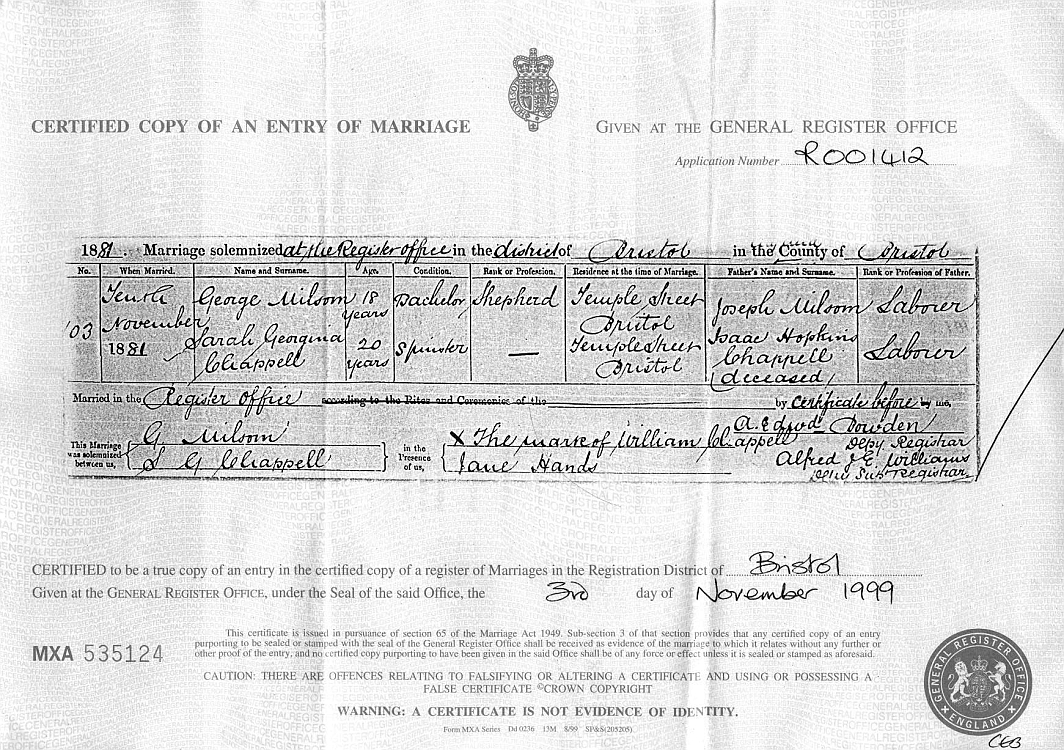 CERTIFIED COPY OF AN ENTRY OF MARRIAGE
GIVEN AT THE GENERAL REGISTER OFFICE
Application Number R001412
1881 Marriage solemnized at the Register office in the district of Bristol in the County of Bristol
No. When Married. Name and Surname. Age. Condition. Rank or Profession. Residence at the time of Marriage. Father's Name and Surname. Rank or Profession of Father.
103
Tenth November 1881
George Milsom 18 years Bachelor Shepherd Temple Street Bristol Joseph Milsom Labourer
Sarah Georgina Chappell 20 years Spinster — Temple Street Bristol Isaac Hopkins Chappell (deceased) Labourer
Married in the Register office according to the Rites and Ceremonies of the by certificate before by me,
This Marriage was solemnized between us,
G Milsom
S G Chappell
in the Presence of us,
X The mark of William Chappell
Jane Hands
A. Edwd Dowden
Depy Registrar
Alfred J E. Williams
Supt Registrar
CERTIFIED to be a true copy of an entry in the certified copy of a register of Marriages in the Registration District of Bristol
Given at the GENERAL REGISTER OFFICE, under the Seal of the said Office, the 3rd day of November 1999
MXA 535124
This certificate is issued in pursuance of section 65 of the Marriage Act 1949. Sub-section 3 of that section provides that any certified copy of an entry
purporting to be sealed or stamped with the seal of the General Register Office shall be received as evidence of the marriage to which it relates without any further or
other proof of the entry, and no certified copy purporting to have been given in the said Office shall be of any force or effect unless it is sealed or stamped as aforesaid.
CAUTION: THERE ARE OFFENCES RELATING TO FALSIFYING OR ALTERING A CERTIFICATE AND USING OR POSSESSING A
FALSE CERTIFICATE ©CROWN COPYRIGHT
WARNING: A CERTIFICATE IS NOT EVIDENCE OF IDENTITY.
Form MXA Series Dd 0236 13M 8/99 SP&S(205205)
GENERAL REGISTER OFFICE
ENGLAND
CEB